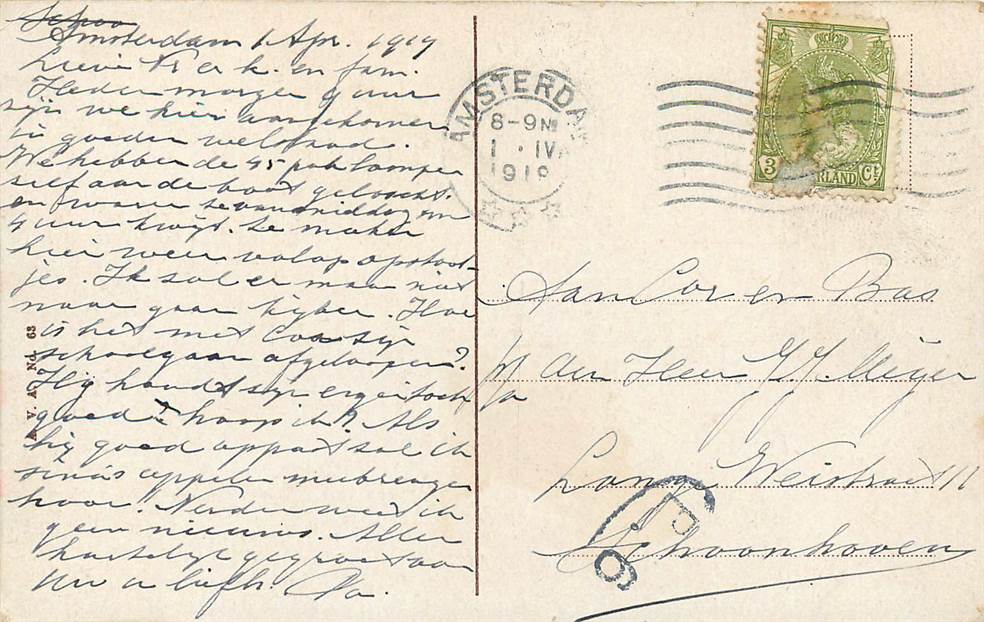 Schoo
Amsterdam 1 Apr. 1919
Lieve Vr en k. en fam.
Hedenmorgen 9 uur
zijn we hier aangekomen
in goeden welstand.
We hebben de 45 pak lompen
zelf aan de boot gebracht.
en waren ze vanmiddag om
4 uur kwijt. Ze maken
hier weer volop opstoot-
jes. Ik zal er maar niet
naar gaan kijken. Hoe
is het met Cor zijn
schoolgaan afgeloopen?
Hij houdt zijn eigen toch
goed hoop ik? Als
hij goed oppast zal ik
sinaasappelen meebrengen
hoor. Verder weet ik
geen nieuws. Allen
hartelijk gegroet van
Uw u liefh. Pa.
A. V. A. No. 63
AMSTERDAM
8-9 N
1 · IV
1919
3 Ct
ERLAND
Aan Cor en Bas
p/a den Heer J. J. Meijer
Lange Weistraat 11
Schoonhoven
E
6